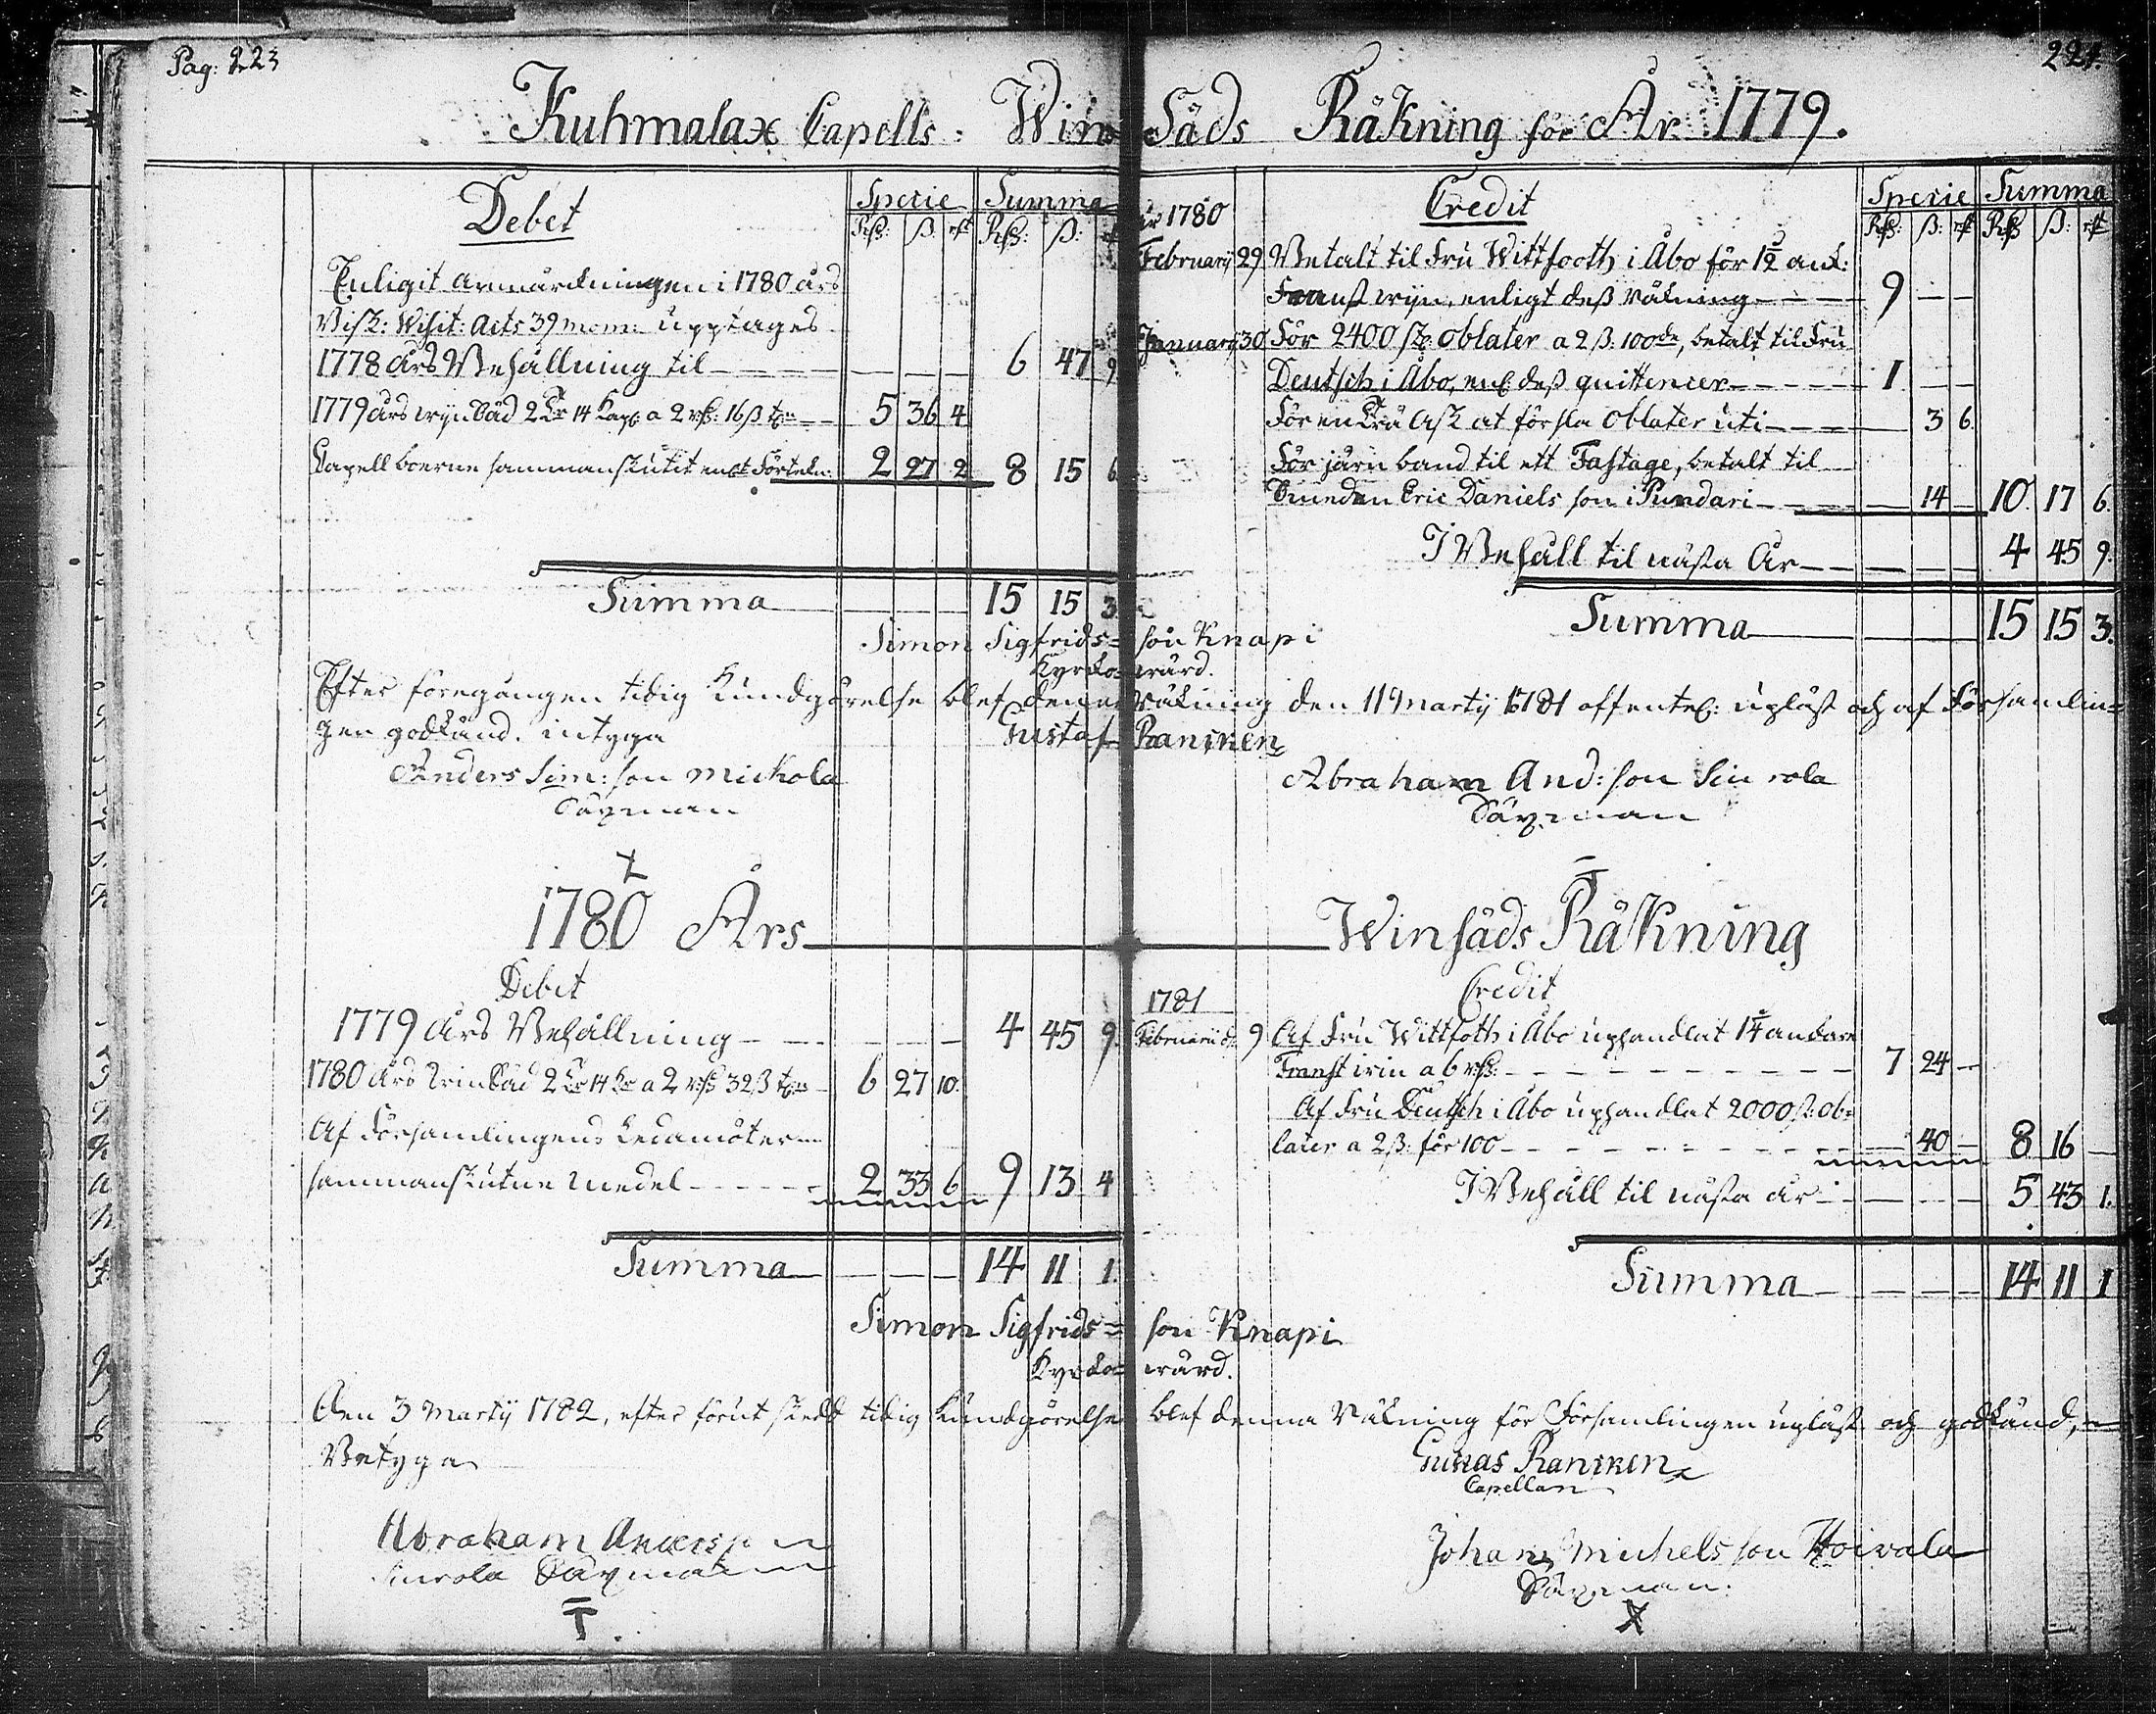 Pag: 223
224.
Kuhmalax Capells: Win Säds Räkning för År 1779.
Debet
Specie Summa
Rß: ß: rst Rß: ß: rst
Enligit anmärckningen i 1780 års
Bisk: Visit: Acts 39 mom: upptages
1778 års Behållning til 6 47 9
1779 års wijn Säd 2 Tr 14 Kapp a 2 rß: 16 ß tn 5 36 4
Capell boerne sammanskutit enl: Förtekn: 2 27 2 8 15 6
Summa 15 15 3
År 1780 Credit
Specie Summa
Rß: ß: rst Rß ß: rst
February 29 Betalt til Fru Wittfooth i Åbo för 1½ ank:
Franst wijn, enligt deß räkning 9
January 30 För 2400 st: oblater a 2 ß: 100de, betalt til Fru
Deutsch i Åbo, enl: deß quittencer 1
För en Trä Ask at försla Oblater uti 3 6
För järn band til ett Fastage, betalt til
Smeden Eric Daniels son i Pundari 14 10 17 6
I Behåll til nästa År 4 45 9
Summa 15 15 3.
Simon Sigfrids= son Knapi
Kyrko= wärd.
Efter föregången tidig Kundgörelse blef denna Räkning den 11 Martij 1781 offentel: upläst och af Församlin=
gen godkänd. intyga Gustaf Rancken
Anders Sim: son Mickola
Säxman
Abraham And: son Sin rola
Säxman
1780 Års Winsäds Räkning
Debet
1779 års Behållning 4 45 9
1780 års Winsäd 2 Tr 14 Kp a 2 rß 32 ß tn 6 27 10.
Af Församlingens Ledamöter
sammanskutne medel 2 33 6 9 13 4
Summa 14 11 1.
1781 Credit
Februarii d: 9 Af Fru Wittfoth i Åbo uphandlat 1¼ anckare
Franst win a 6 rß: 7 24
Af Fru Deutsch i Åbo uphandlat 2000 st: ob=
later a 2 ß: för 100 40 8 16
I Behåll til nästa år 5 43 1.
Summa 14 11 1
Simon Sigfrids= son Knapi
Kyrko= wärd.
Den 3 Martij 1782, efter förut skedd tidig Kundgörelse blef denna Räkning för Församlingen upläst och godkänd,
Betyga
Gustaf Rancken
Capellan
Abraham Anderss
Sinrola Säxman
Johan Michels son Hoivala
Säxman.